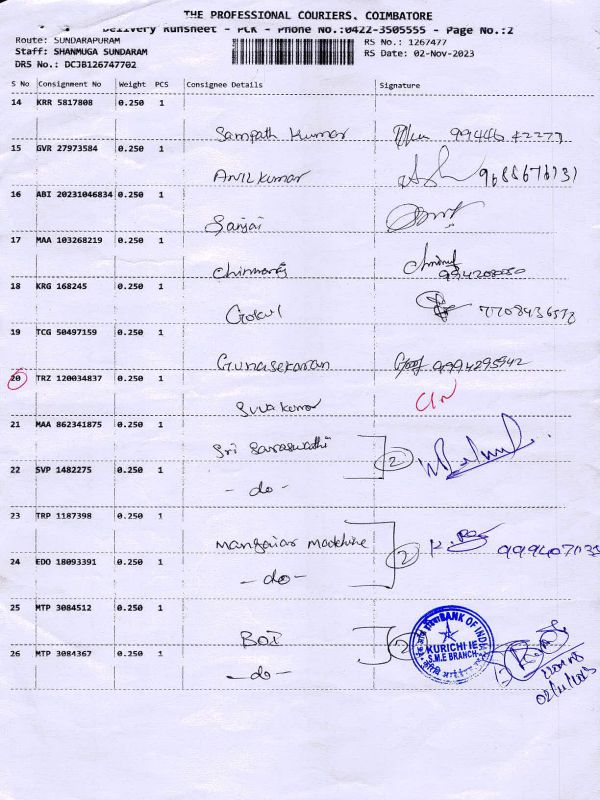 THE PROFESSIONAL COURIERS, COIMBATORE
Delivery Runsheet - PCR - Phone No.:0422-3505555 - Page No.:2
Route: SUNDARAPURAM RS No.: 1267477
Staff: SHANMUGA SUNDARAM RS Date: 02-Nov-2023
DRS No.: DCJB126747702
S No Consignment No Weight PCS Consignee Details Signature
14 KRR 5817808 0.250 1
Sampath Kumar
15 GVR 27973584 0.250 1
Anilkumar
16 ABI 20231046834 0.250 1
Sanjai
17 MAA 103268219 0.250 1
18 KRG 168245 0.250 1
Gokul
19 TCG 50497159 0.250 1
Gunasekaran
20 TRZ 120034837 0.250 1
Siva kumar
21 MAA 862341875 0.250 1
Sri Saraswathi
2
22 SVP 1482275 0.250 1
- do -
23 TRP 1187398 0.250 1
Mangaiar
2
24 EDO 18093391 0.250 1
- do -
25 MTP 3084512 0.250 1
BOI
2
BANK OF INDIA
KURICHI IE
S.M.E BRANCH
26 MTP 3084367 0.250 1
- do -